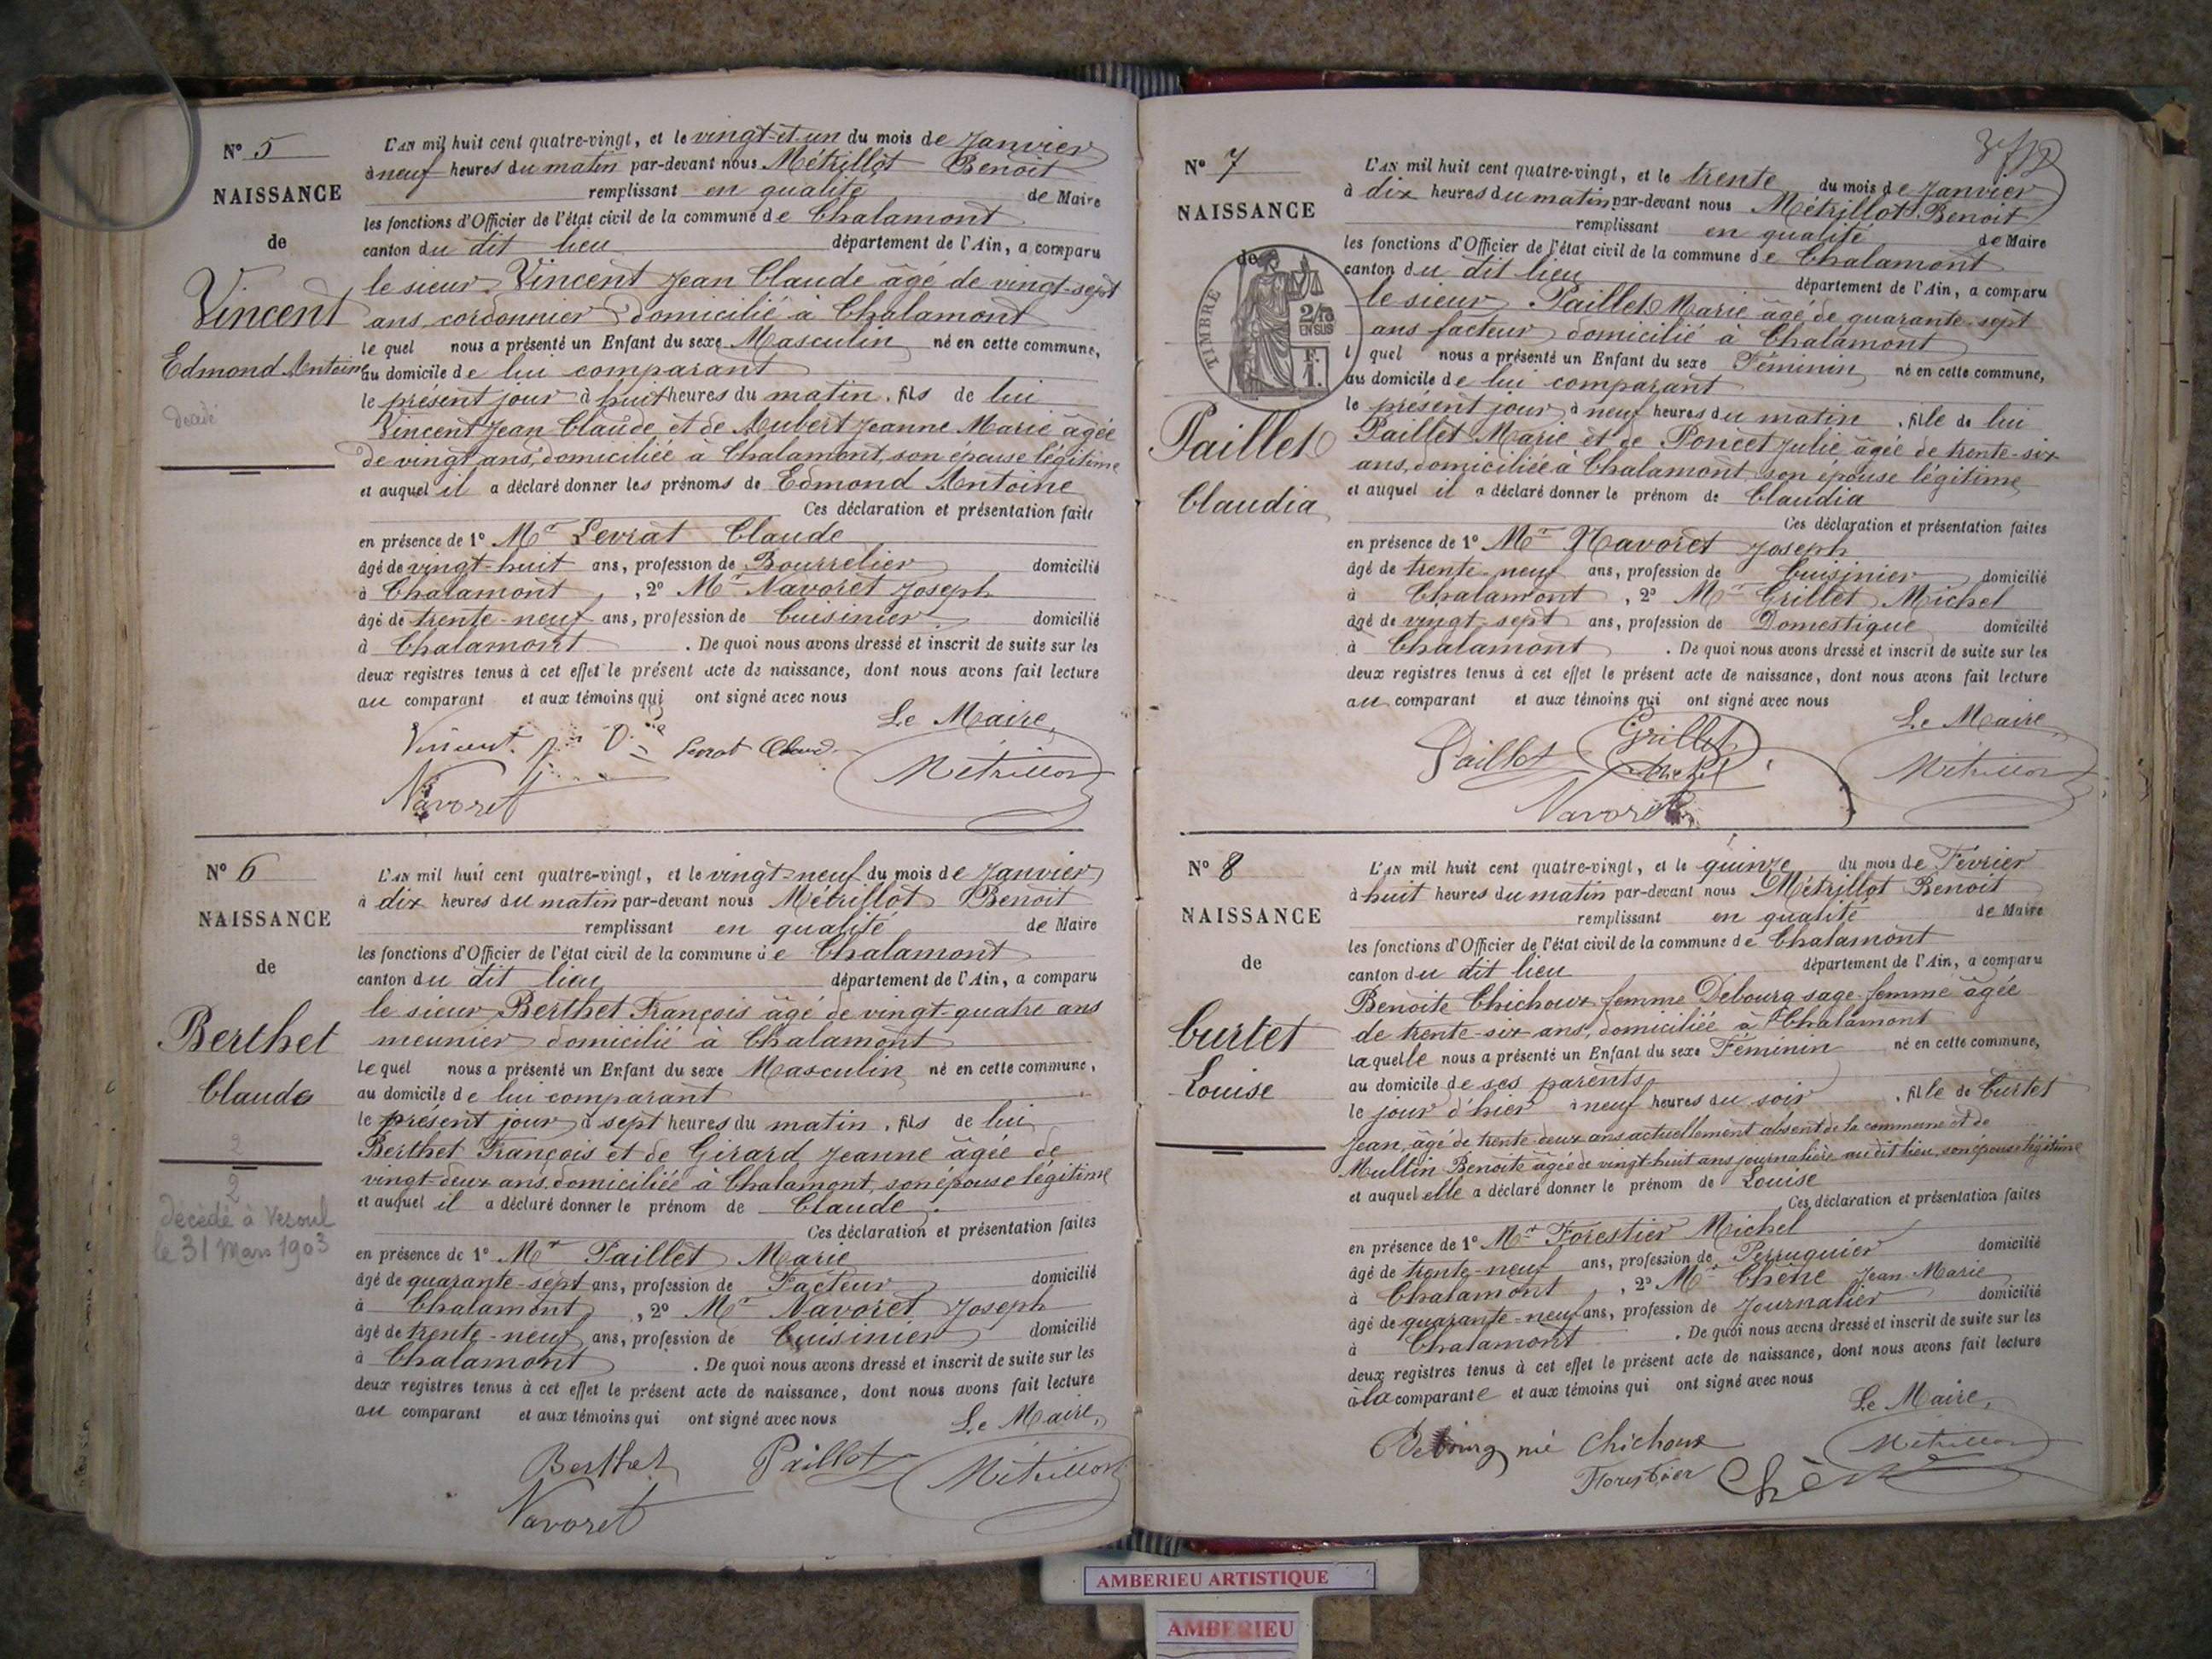 N° 5
NAISSANCE
de
Vincent
Edmond Antoine
décédé
L'AN mil huit cent quatre-vingt, et le vingt-et-un du mois de Janvier
à neuf heures du matin par-devant nous Métrillot Benoit
remplissant en qualité de Maire
les fonctions d'Officier de l'état civil de la commune de Chalamont
canton du dit lieu département de l'Ain, a comparu
le sieur Vincent Jean Claude âgé de vingt-sept
ans, cordonnier domicilié à Chalamont
le quel nous a présenté un Enfant du sexe Masculin né en cette commune,
au domicile de lui comparant
le présent jour à huit heures du matin, fils de lui
Vincent Jean Claude et de Aubert Jeanne Marie âgée
de vingt ans, domiciliée à Chalamont, son épouse légitime
et auquel il a déclaré donner les prénoms de Edmond Antoine
Ces déclaration et présentation faite
en présence de 1° Mr Levrat Claude
âgé de vingt-huit ans, profession de Bourrelier domicilié
à Chalamont, 2° Mr Navoret Joseph
âgé de trente-neuf ans, profession de Cuisinier domicilié
à Chalamont. De quoi nous avons dressé et inscrit de suite sur les
deux registres tenus à cet effet le présent acte de naissance, dont nous avons fait lecture
au comparant et aux témoins qui ont signé avec nous
Le Maire,
Vincent Levrat Claude Métrillot
Navoret
N° 6
NAISSANCE
de
Berthet
Claude
2
2
Décédé à Vesoul
le 31 Mars 1903
L'AN mil huit cent quatre-vingt, et le vingt-neuf du mois de Janvier
à dix heures du matin par-devant nous Métrillot Benoit
remplissant en qualité de Maire
les fonctions d'Officier de l'état civil de la commune de Chalamont
canton du dit lieu département de l'Ain, a comparu
le sieur Berthet François âgé de vingt-quatre ans
meunier domicilié à Chalamont
le quel nous a présenté un Enfant du sexe Masculin né en cette commune,
au domicile de lui comparant
le présent jour à sept heures du matin, fils de lui
Berthet François et de Girard Jeanne âgée de
vingt-deux ans, domiciliée à Chalamont, son épouse légitime
et auquel il a déclaré donner le prénom de Claude.
Ces déclaration et présentation faites
en présence de 1° Mr Paillet Marie
âgé de quarante-sept ans, profession de Facteur domicilié
à Chalamont, 2° Mr Navoret Joseph
âgé de trente-neuf ans, profession de Cuisinier domicilié
à Chalamont. De quoi nous avons dressé et inscrit de suite sur les
deux registres tenus à cet effet le présent acte de naissance, dont nous avons fait lecture
au comparant et aux témoins qui ont signé avec nous
Le Maire,
Berthet Paillet Métrillot
Navoret
N° 7
NAISSANCE
de
TIMBRE
2/10
EN SUS
F.
1.
Paillet
Claudia
L'AN mil huit cent quatre-vingt, et le trente du mois de Janvier
à dix heures du matin par-devant nous Métrillot Benoit
remplissant en qualité de Maire
les fonctions d'Officier de l'état civil de la commune de Chalamont
canton du dit lieu département de l'Ain, a comparu
le sieur Paillet Marie âgé de quarante-sept
ans facteur domicilié à Chalamont
l quel nous a présenté un Enfant du sexe Féminin né en cette commune,
au domicile de lui comparant
le présent jour à neuf heures du matin, fille de lui
Paillet Marie et de Poncet Julie âgée de trente-six
ans, domiciliée à Chalamont, son épouse légitime
et auquel il a déclaré donner le prénom de Claudia
Ces déclaration et présentation faites
en présence de 1° Mr Navoret Joseph
âgé de trente-neuf ans, profession de Cuisinier domicilié
à Chalamont, 2° Mr Grillet Michel
âgé de vingt-sept ans, profession de Domestique domicilié
à Chalamont. De quoi nous avons dressé et inscrit de suite sur les
deux registres tenus à cet effet le présent acte de naissance, dont nous avons fait lecture
au comparant et aux témoins qui ont signé avec nous
Le Maire,
Paillet Grillet Michel Métrillot
Navoret
N° 8
NAISSANCE
de
Curtet
Louise
L'AN mil huit cent quatre-vingt, et le quinze du mois de Février
à huit heures du matin par-devant nous Métrillot Benoit
remplissant en qualité de Maire
les fonctions d'Officier de l'état civil de la commune de Chalamont
canton du dit lieu département de l'Ain, a comparu
Benoite Chichoux femme Debourg sage-femme âgée
de trente-six ans, domiciliée à Chalamont
laquelle nous a présenté un Enfant du sexe Féminin né en cette commune,
au domicile de ses parents
le jour d'hier à neuf heures du soir, fille de Curtet
Jean, âgé de trente-deux ans actuellement absent de la commune et de
Mullin Benoite âgée de vingt-huit ans journalière au dit lieu, son épouse légitime
et auquel elle a déclaré donner le prénom de Louise
Ces déclaration et présentation faites
en présence de 1° Mr Forestier Michel
âgé de trente-neuf ans, profession de Perruquier domicilié
à Chalamont, 2° Mr Chêne Jean Marie
âgé de quarante-neuf ans, profession de Journalier domicilié
à Chalamont. De quoi nous avons dressé et inscrit de suite sur les
deux registres tenus à cet effet le présent acte de naissance, dont nous avons fait lecture
à la comparante et aux témoins qui ont signé avec nous
Le Maire,
Debourg né Chichoux Métrillot
Forestier Chêne
AMBERIEU ARTISTIQUE
AMBERIEU